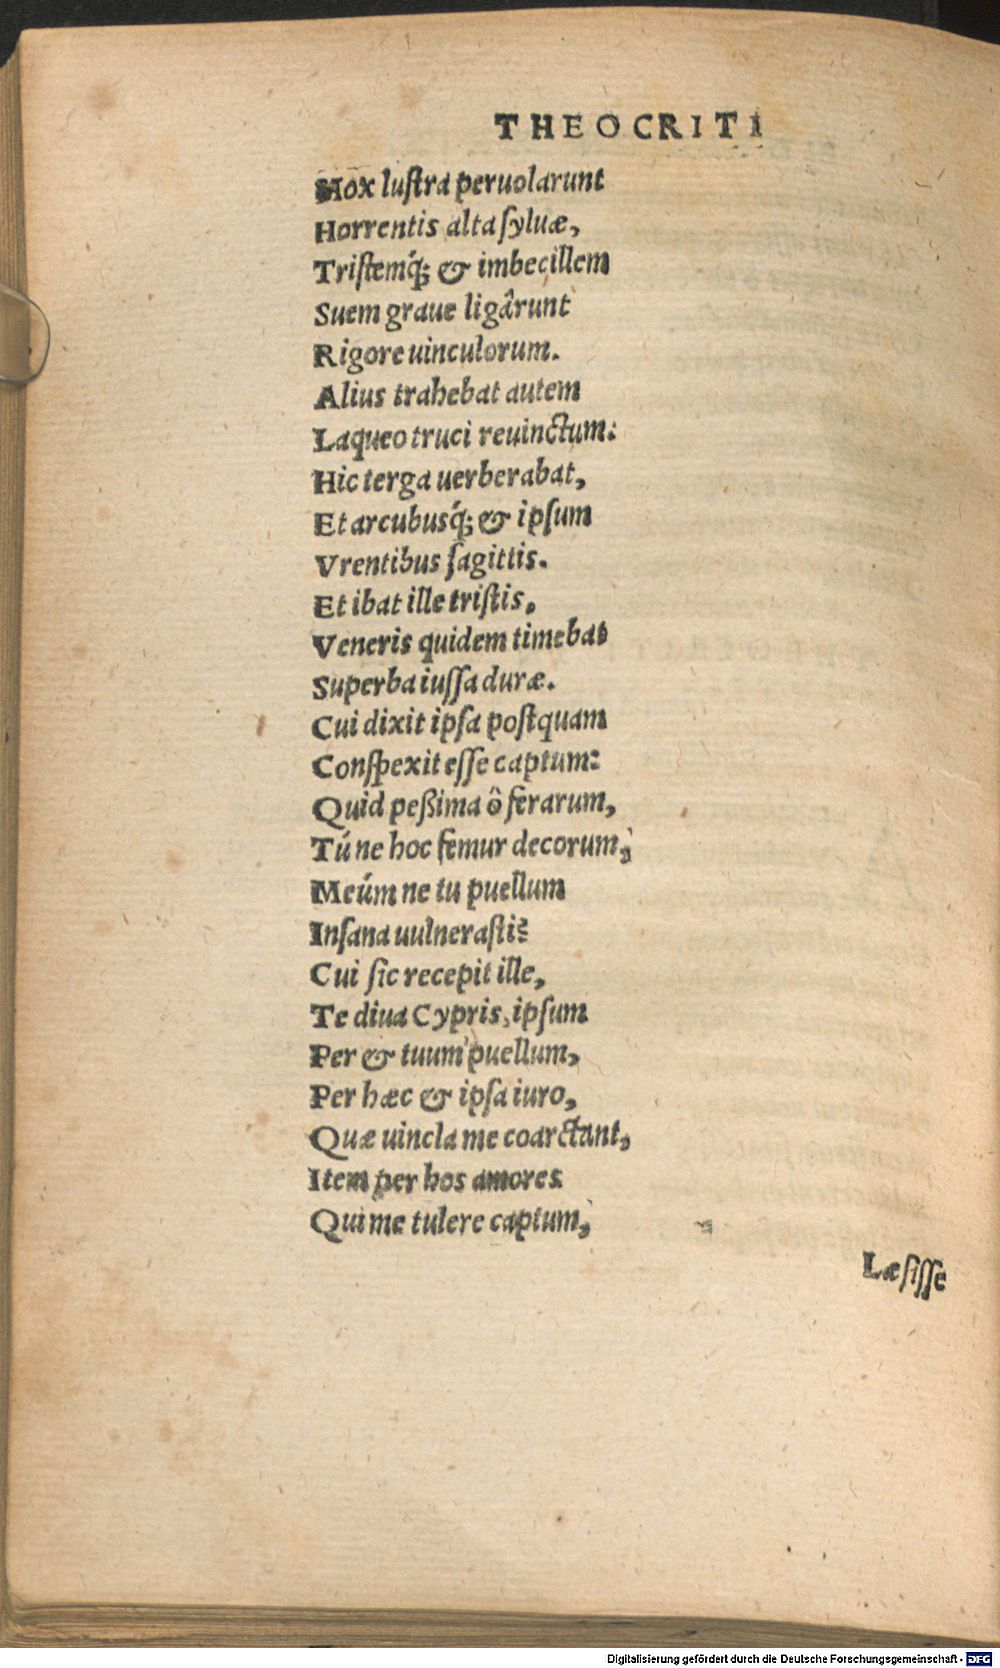 THEOCRITI
Mox lustra peruolarunt
Horrentis alta syluæ,
Tristemq́; & imbecillem
Suem graue ligârunt
Rigore uinculorum.
Alius trahebat autem
Laqueo truci reuinctum:
Hic terga uerberabat,
Et arcubusq́; & ipsum
Vrentibus sagittis.
Et ibat ille tristis,
Veneris quidem timebat
Superba iussa duræ.
Cui dixit ipsa postquam
Conspexit esse captum:
Quid peßima ô ferarum,
Tú ne hoc femur decorum,
Meúm ne tu puellum
Insana uulnerasti?
Cui sic recepit ille,
Te diua Cypris, ipsum
Per & tuum puellum,
Per hæc & ipsa iuro,
Quæ uincla me coarctant,
Item per hos amores
Qui me tulere captum,
Læsisse
Digitalisierung gefördert durch die Deutsche Forschungsgemeinschaft - DFG